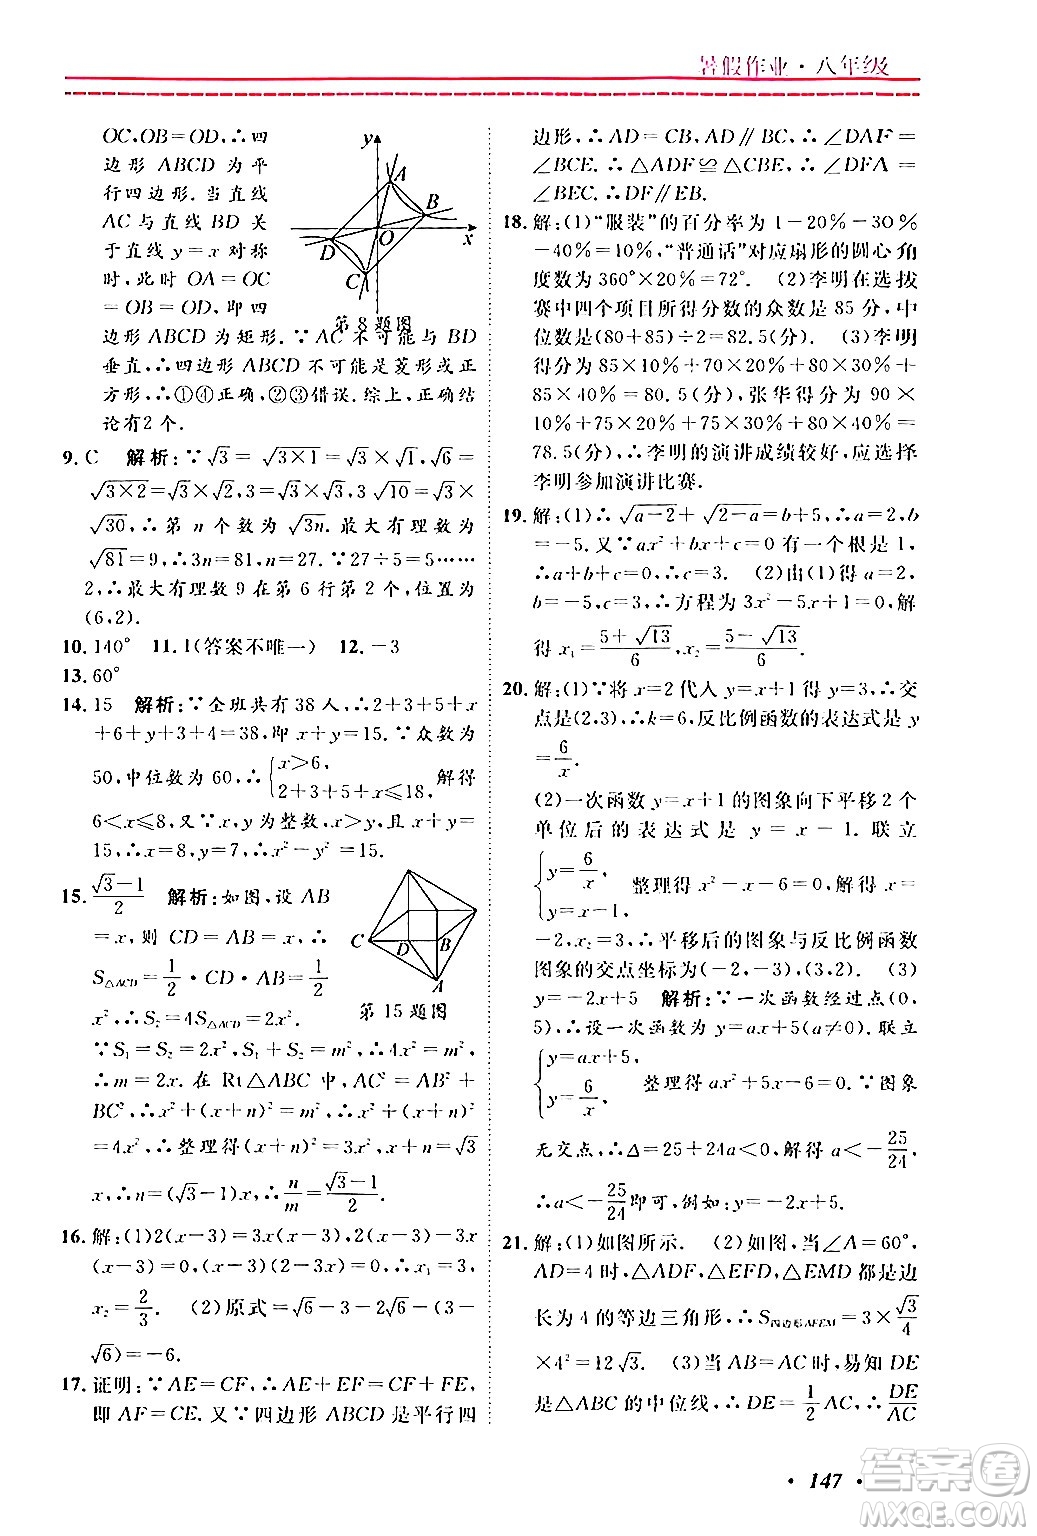 暑假作业·八年级
OC,OB=OD,∴四
边形 ABCD 为平
行四边形.当直线
AC 与直线 BD 关
于直线 y=x 对称
时,此时 OA=OC
=OB=OD,即四
y
A
B
O
x
D
C
第8题图
边形 ABCD 为矩形.∵AC 不可能与 BD
垂直,∴四边形 ABCD 不可能是菱形或正
方形,∴①④正确,②③错误.综上,正确的结
论有2个.
9. C 解析:∵√3=√(3×1)=√3×√1,√6=
√(3×2)=√3×√2,3=√3×√3,3√10=√3×
√30,∴第 n 个数为√3n.最大有理数为
√81=9,∴3n=81,n=27.∵27÷5=5……
2,∴最大有理数 9 在第 6 行第 2 个,位置为
(6,2).
10. 140° 11. 1(答案不唯一) 12. -3
13. 60°
14. 15 解析:∵全班共有 38 人,∴2+3+5+x
+6+y+3+4=38,即 x+y=15.∵众数为
50,中位数为 60,∴{x>6, 2+3+5+x≤18, 解得
6<x≤8,又∵x,y 为整数,x>y 且 x+y=
15,∴x=8,y=7,∴x²-y²=15.
15. (√3-1)/2 解析:如图,设 AB
=x,则 CD=AB=x,∴
S△ACD=1/2·CD·AB=1/2
x²,∴S₂=4S△ACD=2x².
C
D
B
A
第 15 题图
∵S₁=S₂=2x²,S₁+S₂=m²,∴4x²=m²,
∴m=2x.在 Rt△ABC 中,AC²=AB²+
BC²,∴x²+(x+n)²=m²,∴x²+(x+n)²
=4x²,∴整理得(x+n)²=3x²,∴x+n=√3
x,∴n=(√3-1)x,∴n/m=(√3-1)/2.
16. 解:(1)2(x-3)=3x(x-3),2(x-3)-3x
(x-3)=0,(x-3)(2-3x)=0,∴x₁=3,
x₂=2/3. (2)原式=√6-3-2√6-(3-
√6)=-6.
17. 证明:∵AE=CF,∴AE+EF=CF+FE,
即 AF=CE.又∵四边形 ABCD 是平行四
边形,∴AD=CB,AD∥BC,∴∠DAF=
∠BCE.∴△ADF≌△CBE,∴∠DFA=
∠BEC.∴DF∥EB.
18. 解:(1)“服装”的百分率为 1-20%-30%
-40%=10%,“普通话”对应扇形的圆心角
度数为 360°×20%=72°. (2)李明在选拔
赛中四个项目所得分数的众数是 85 分,中
位数是(80+85)÷2=82.5(分). (3)李明
得分为 85×10%+70×20%+80×30%+
85×40%=80.5(分),张华得分为 90×
10%+75×20%+75×30%+80×40%=
78.5(分),∴李明的演讲成绩较好,应选择
李明参加演讲比赛.
19. 解:(1)∴√(a-2)+√(2-a)=b+5,∴a=2,b
=-5.又∵ax²+bx+c=0 有一根是 1,
∴a+b+c=0,∴c=3. (2)由(1)得 a=2,
b=-5,c=3,∴方程为 3x²-5x+1=0,解
得 x₁=(5+√13)/6,x₂=(5-√13)/6.
20. 解:(1)∵将 x=2 代入 y=x+1 得 y=3,∴交
点是(2,3),∴k=6,反比例函数的表达式是 y
=6/x.
(2)一次函数 y=x+1 的图象向下平移 2 个
单位后的表达式是 y=x-1.联立
{y=6/x, y=x-1, 整理得 x²-x-6=0,解得 x₁=
-2,x₂=3,∴平移后的图象与反比例函数
图象的交点坐标为(-2,-3),(3,2). (3)
y=-2x+5 解析:∵一次函数经过点(0,
5),∴设一次函数为 y=ax+5(a≠0).联立
{y=ax+5, y=6/x, 整理得 ax²+5x-6=0.∵图象
无交点,∴Δ=25+24a<0,解得 a<-25/24,
∴a<-25/24即可,例如:y=-2x+5.
21. 解:(1)如图所示. (2)如图,当∠A=60°,
AD=4 时,△ADF,△EFD,△EMD 都是边
长为 4 的等边三角形,∴S四边形AFEM=3×√3/4
×4²=12√3. (3)当 AB=AC 时,易知 DE
是△ABC 的中位线,∴DE=1/2AC,∴DE/AC
· 147 ·
答案圈
MXQE.COM